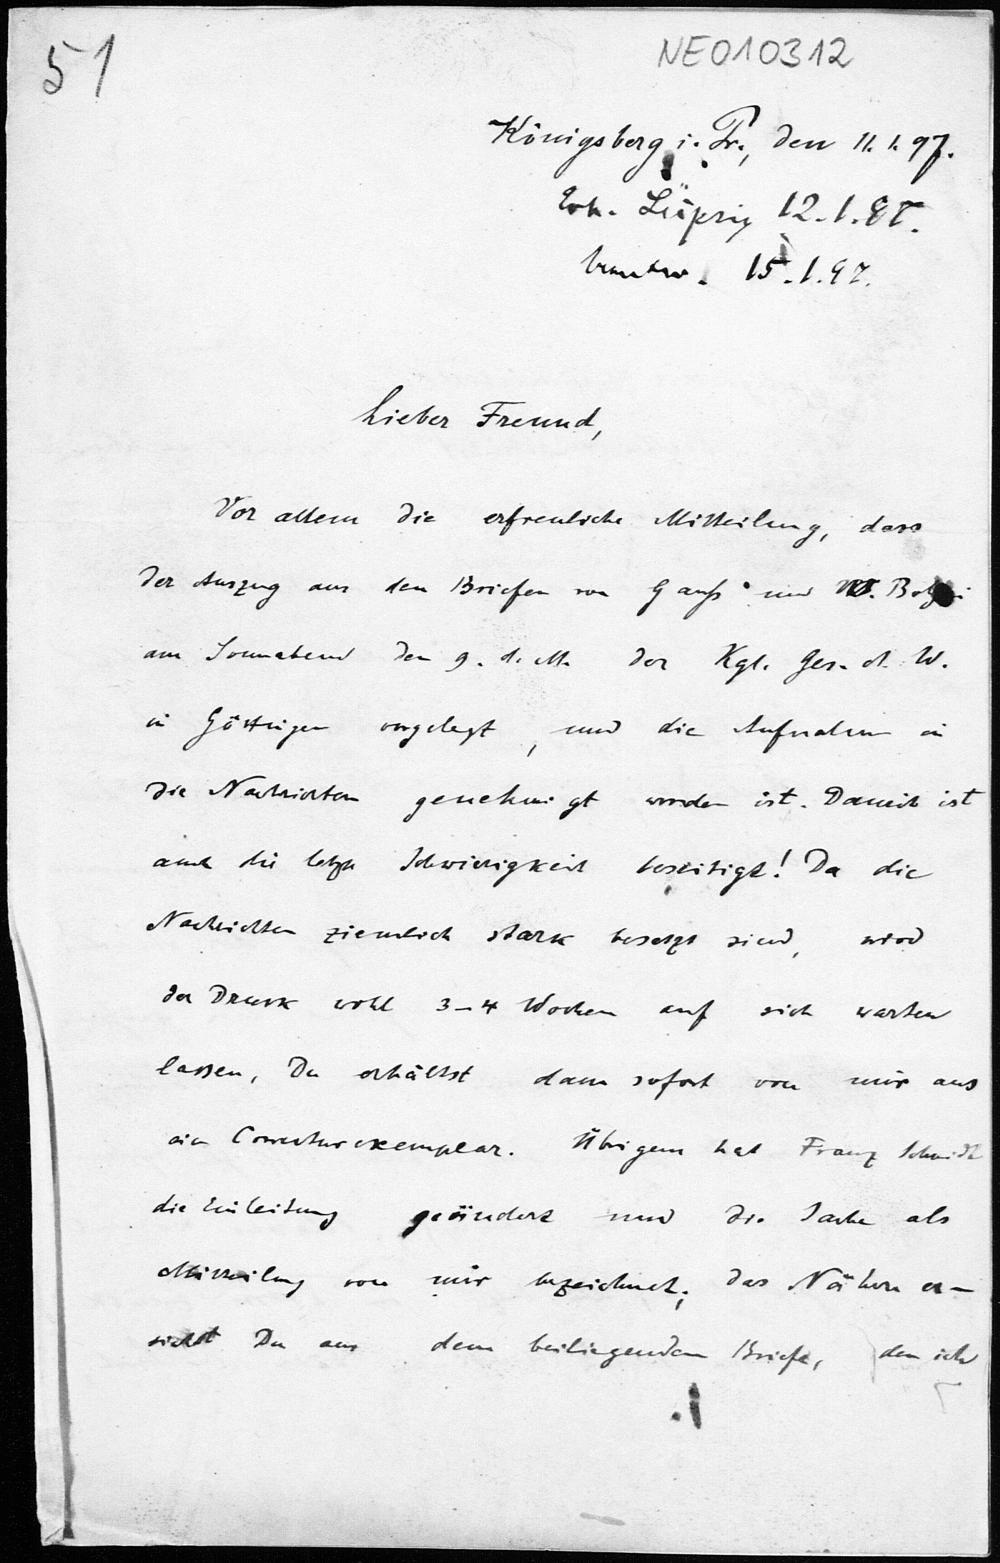 51
NE010312
Königsberg i. Pr., den 11. 1. 97.
Erh. Leipzig 12.1.97.
beantw. 15.1.97.
Lieber Freund,
Vor allem die erfreuliche Mitteilung, dass
der Auszug aus den Briefen von Gauß und W. Bolyai
am Sonnabend den 9. d. M. der Kgl. Ges. d. W.
in Göttingen vorgelegt, und die Aufnahme in
die Nachrichten genehmigt worden ist. Damit ist
auch die letzte Schwierigkeit beseitigt! Da die
Nachrichten ziemlich stark besetzt sind, wird
der Druck wohl 3-4 Wochen auf sich warten
lassen, Du erhältst dann sofort von mir aus
ein Correcturexemplar. Übrigens hat Franz Schmidt
die Einleitung geändert und die Sache als
Mitteilung von mir bezeichnet; das Nähere er-
siehst Du aus dem beiliegenden Briefe, den ich